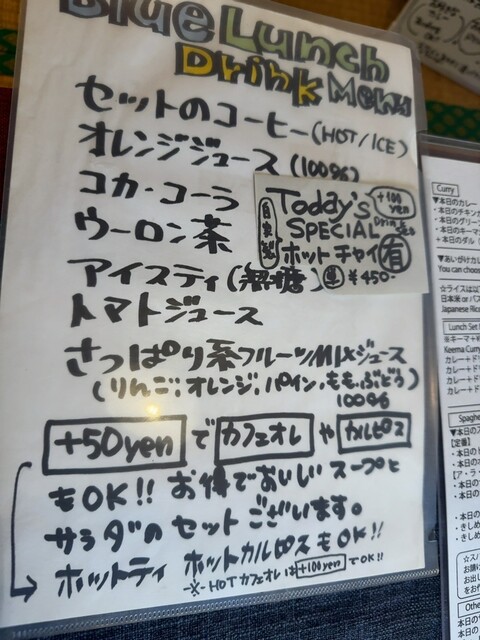 Blue Lunch
Drink Menu
セットのコーヒー(HOT/ICE)
オレンジジュース(100%)
コカ・コーラ
ウーロン茶
アイスティ(無糖)
トマトジュース
さっぱり系フルーツMIXジュース
(りんご,オレンジ,パイン,もも,ぶどう)
100%
+50yenでカフェオレやカルピス
もOK!! お得でおいしいスープと
サラダのセットございます。
ホットティ ホットカルピスもOK!!
-※-HOTカフェオレは+100yenでOK!!
Today's
SPECIAL
+100
yen
Drink
Set
自家製
ホットチャイ 有
単 ¥450-
Curry
▼本日のカレー
・本日のチキン
・本日のグリーン
・本日のキーマ
+本日のダル
▼あいがけカレー
You can choose
☆ライスは以下
日本米 or バス
Japanese Rice
Lunch Set
※キーマ+
Keema Curry
カレー+ド
カレー+ド
カレー+ド
カレー+ド
Spaghe
▼本日の
【定番】
・本日の
・本日の
【ア・ラ・
・本日の
・本日の
・きしめ
・きしめ
☆ス
お請
お出し
をお
Othe
・本日の
・本日の